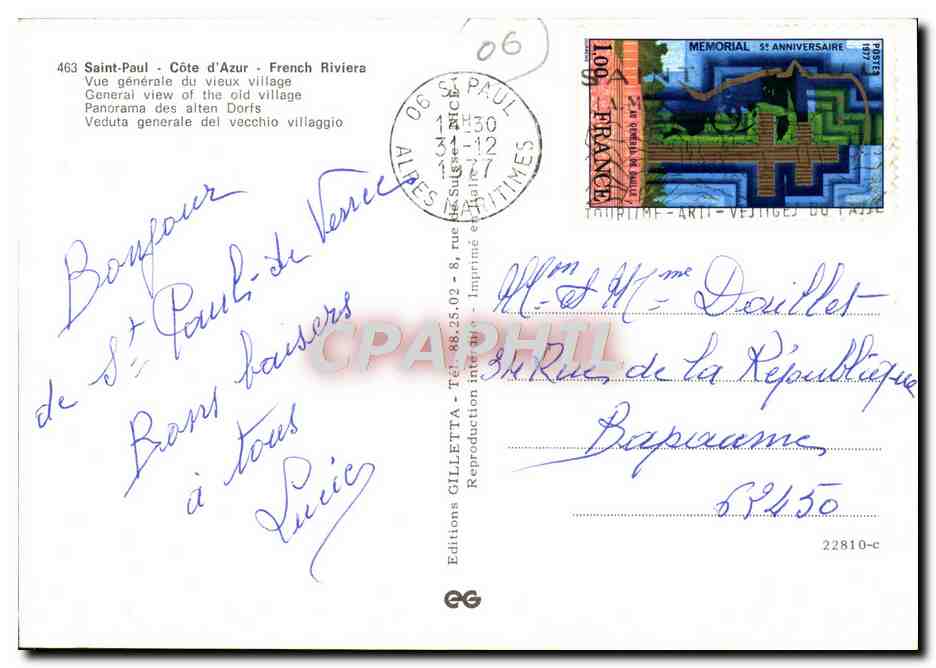 06
463 Saint-Paul - Côte d'Azur - French Riviera
Vue générale du vieux village
General view of the old village
Panorama des alten Dorfs
Veduta generale del vecchio villaggio
06 ST PAUL
1 H 30
31-12
1977
ALPES MARITIMES
MEMORIAL 5e ANNIVERSAIRE
POSTES 1977
1.00 FRANCE
AU GENERAL DE GAULLE
SAINT
TOURISME-ARTS-VESTIGES DU PASSE
Bonjour
de St Paul-de Vence
Bons baisers
à tous
Lucie
Editions GILLETTA - Tél. 88.25.02 - 8, rue de Suisse NICE
Reproduction interdite - Imprimé en Italie
CPAPHIL
Mon et Mme Doillet
34 Rue de la République
Bapaume
62450
22810-c
EG